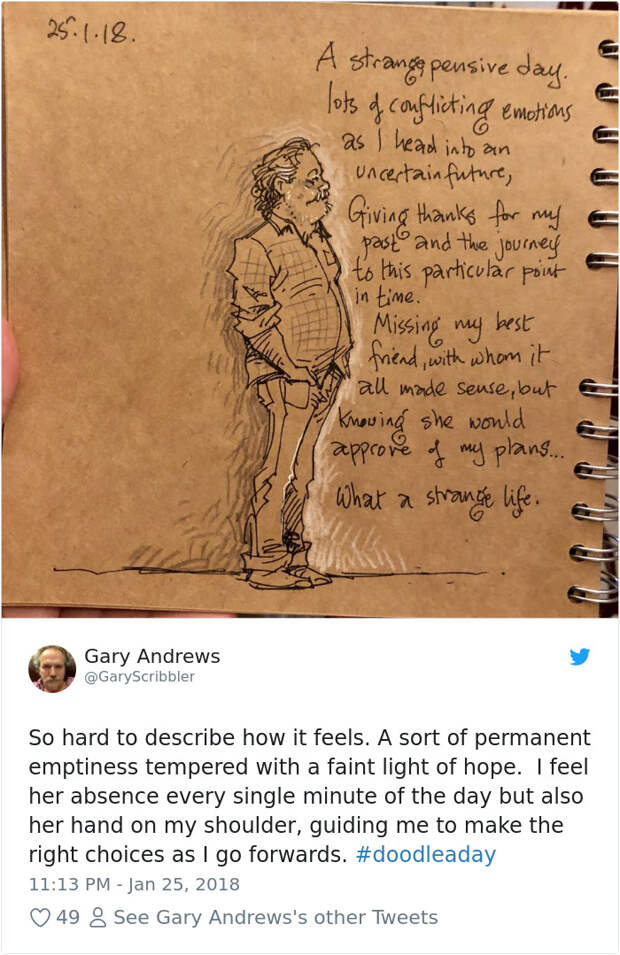 25.1.18.
A strange pensive day.
lots of conflicting emotions
as I head into an
uncertain future,
Giving thanks for my
past and the journey
to this particular point
in time.
Missing my best
friend, with whom it
all made sense, but
knowing she would
approve of my plans...
What a strange life.
Gary Andrews
@GaryScribbler
So hard to describe how it feels. A sort of permanent
emptiness tempered with a faint light of hope. I feel
her absence every single minute of the day but also
her hand on my shoulder, guiding me to make the
right choices as I go forwards. #doodleaday
11:13 PM - Jan 25, 2018
49 See Gary Andrews's other Tweets